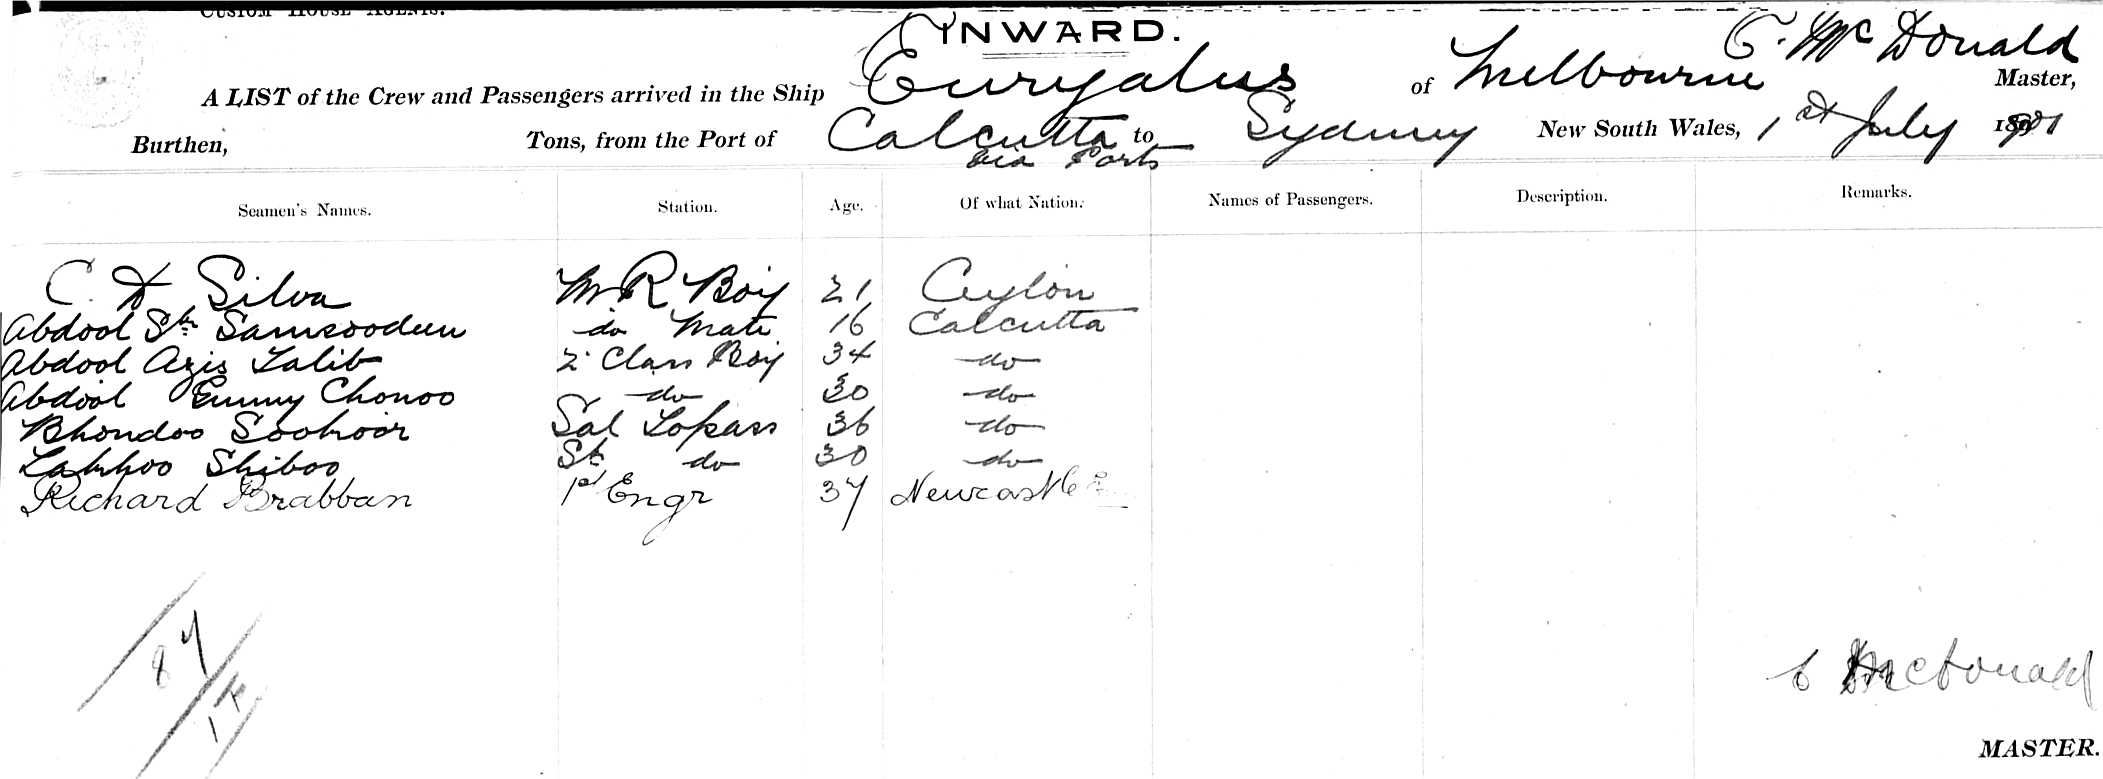 CUSTOM HOUSE AGENTS.
INWARD.
C. McDonald
A LIST of the Crew and Passengers arrived in the Ship Euryalus of Melbourne Master,
Burthen, Tons, from the Port of Calcutta to Sydney New South Wales, 1st July
via Ports
Seamen's Names. Station. Age. Of what Nation. Names of Passengers. Description. Remarks.
C. D Silva M R Boy 21 Ceylon
Abdool Sk Samsoodeen do Mate 16 Calcutta
Abdool Azis Talib 2 Class Boy 34 do
Abdool Gunny Chonoo do 30 do
Bhondoo Sookoor Sal Topass 36 do
Lakhoo Shiboo Sk do 30 do
Richard Brabban 1st Engr 37 Newcastle
87
C McDonald
MASTER.